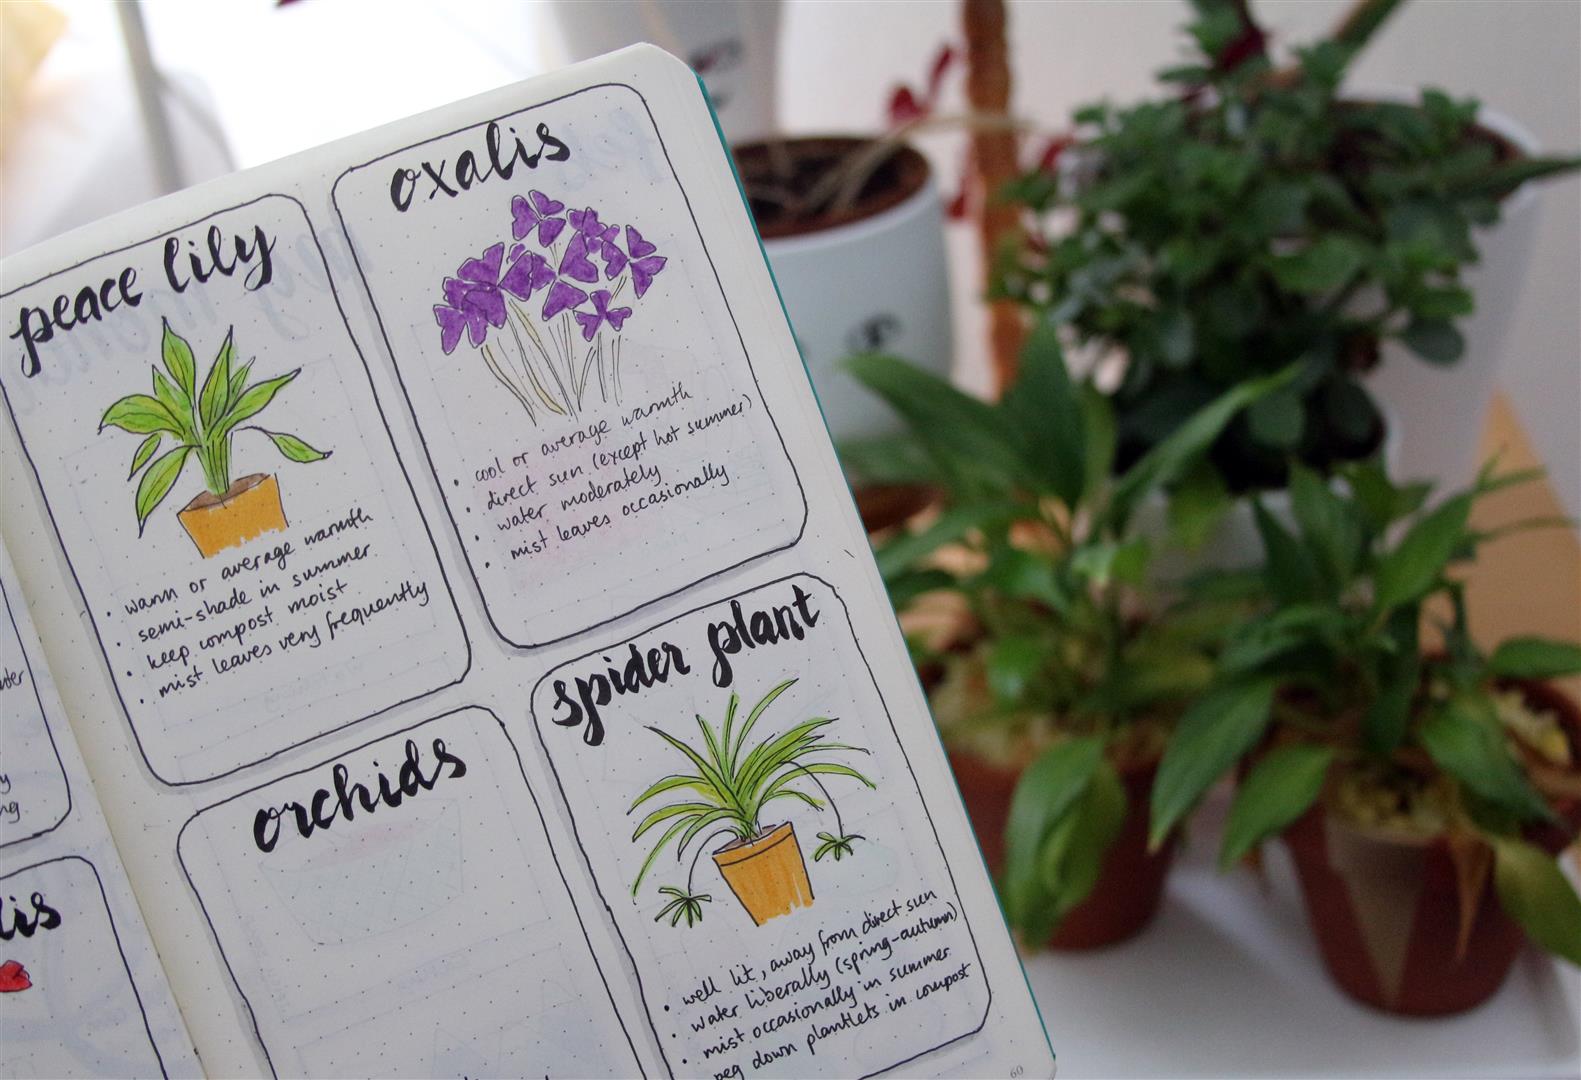 peace lily
• warm or average warmth
• semi-shade in summer
• keep compost moist
• mist leaves very frequently
oxalis
• cool or average warmth
• direct sun (except hot summer)
• water moderately
• mist leaves occasionally
orchids
spider plant
• well lit, away from direct sun
• water liberally (spring-autumn)
• mist occasionally in summer
• peg down plantlets in compost
lis
60